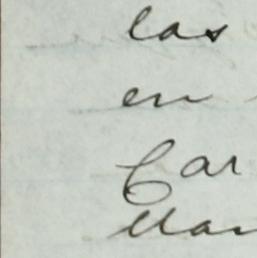 las
en
Car
Man